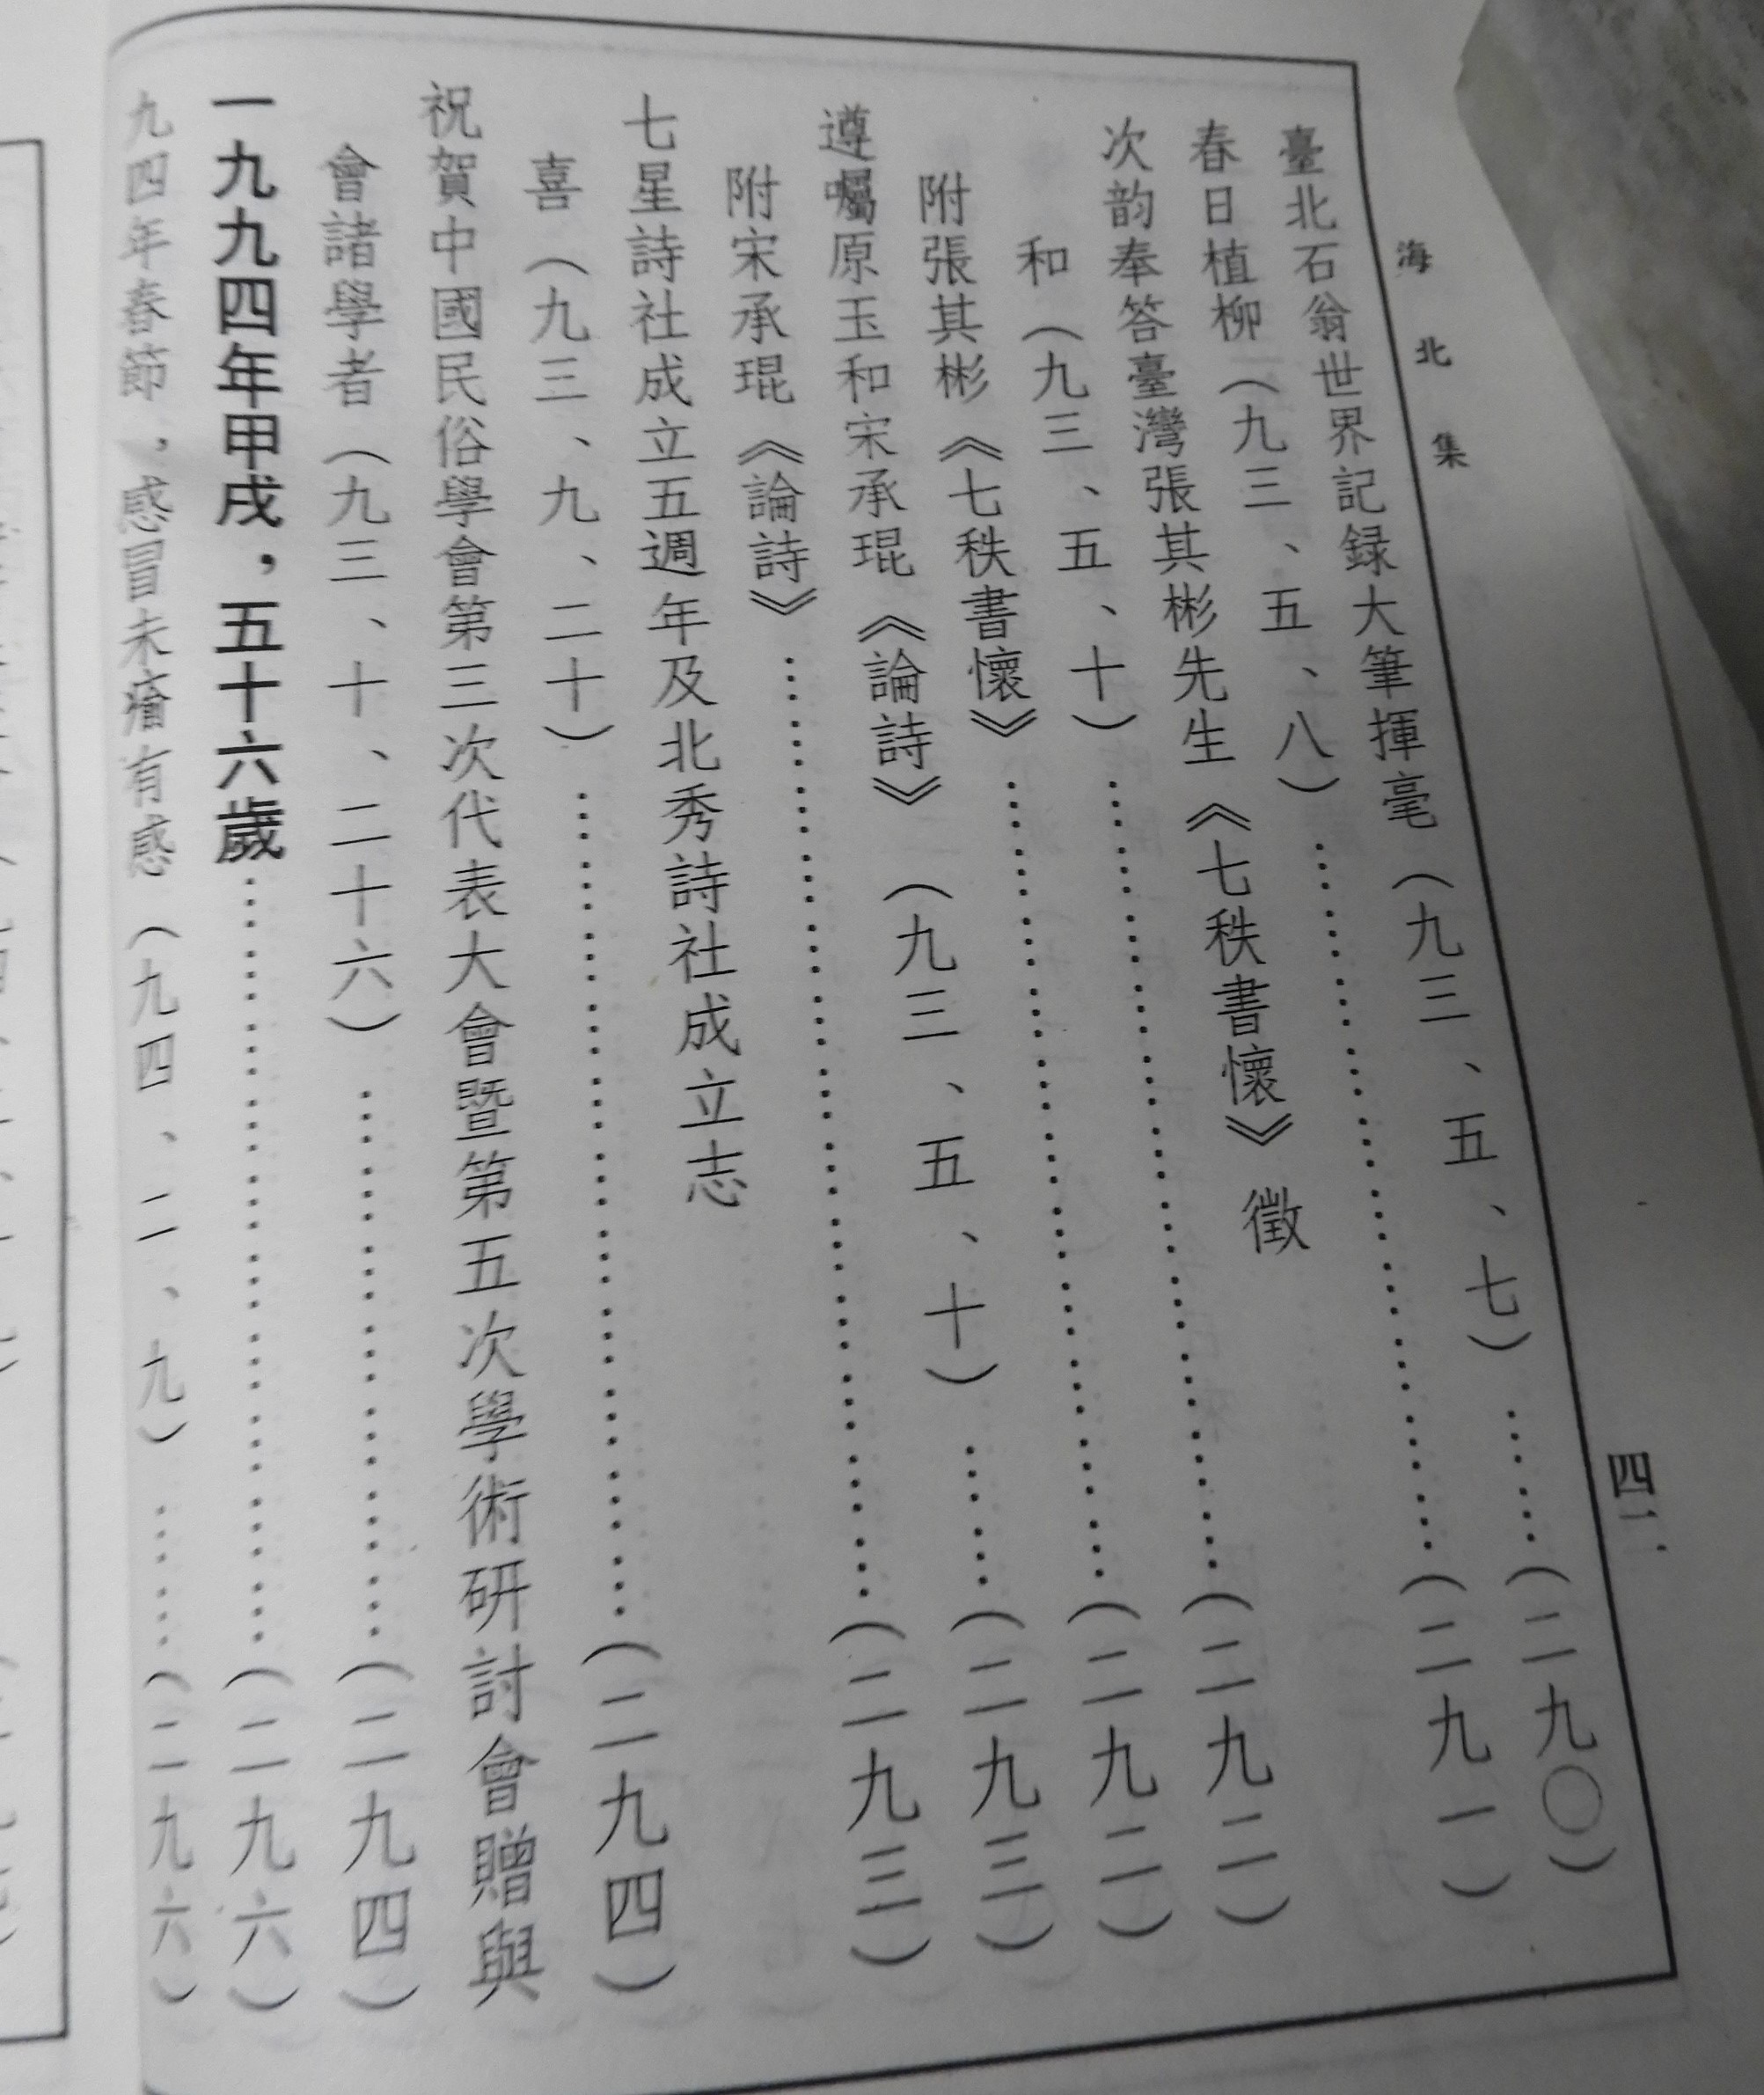 海北集
四二
臺北石翁世界記録大筆揮毫（九三、五、七）……（二九〇）
春日植柳（九三、五、八）……（二九一）
次韵奉答臺灣張其彬先生《七秩書懷》徵
和（九三、五、十）……（二九二）
附張其彬《七秩書懷》……（二九二）
遵囑原玉和宋承琨《論詩》（九三、五、十）……（二九三）
附宋承琨《論詩》……（二九三）
七星詩社成立五週年及北秀詩社成立志
喜（九三、九、二十）……（二九四）
祝賀中國民俗學會第三次代表大會暨第五次學術研討會贈與
會諸學者（九三、十、二十六）……（二九四）
一九九四年甲戌，五十六歲……（二九六）
九四年春節，感冒未癒有感（九四、二、九）……（二九六）